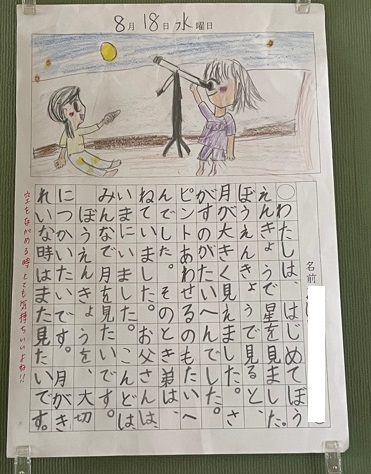 8月18日水曜日
名前
○わたしは、はじめてぼう
えんきょうで星を見ました。
ぼうえんきょうで見ると、
月が大きく見えました。さ
がすのがたいへんでした。
ピントあわせるのもたいへ
んでした。そのとき弟は、
ねていました。お父さんは、
いまにいました。こんどは
みんなで月を見たいです。
ぼうえんきょうを、大切
につかいたいです。月がき
れいな時はまた見たいです。
空をながめる時とても気持ちいいよね!!